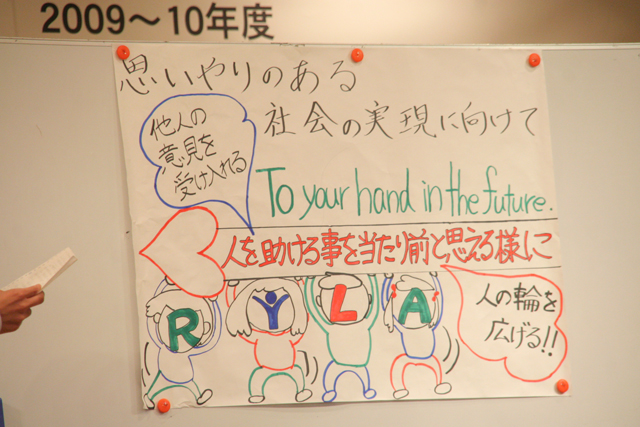 2009～10年度
思いやりのある
社会の実現に向けて
他人の
意見を
受け入れる
To your hand in the future.
人を助ける事を当たり前と思える様に
RYLA
人の輪を
広げる!!